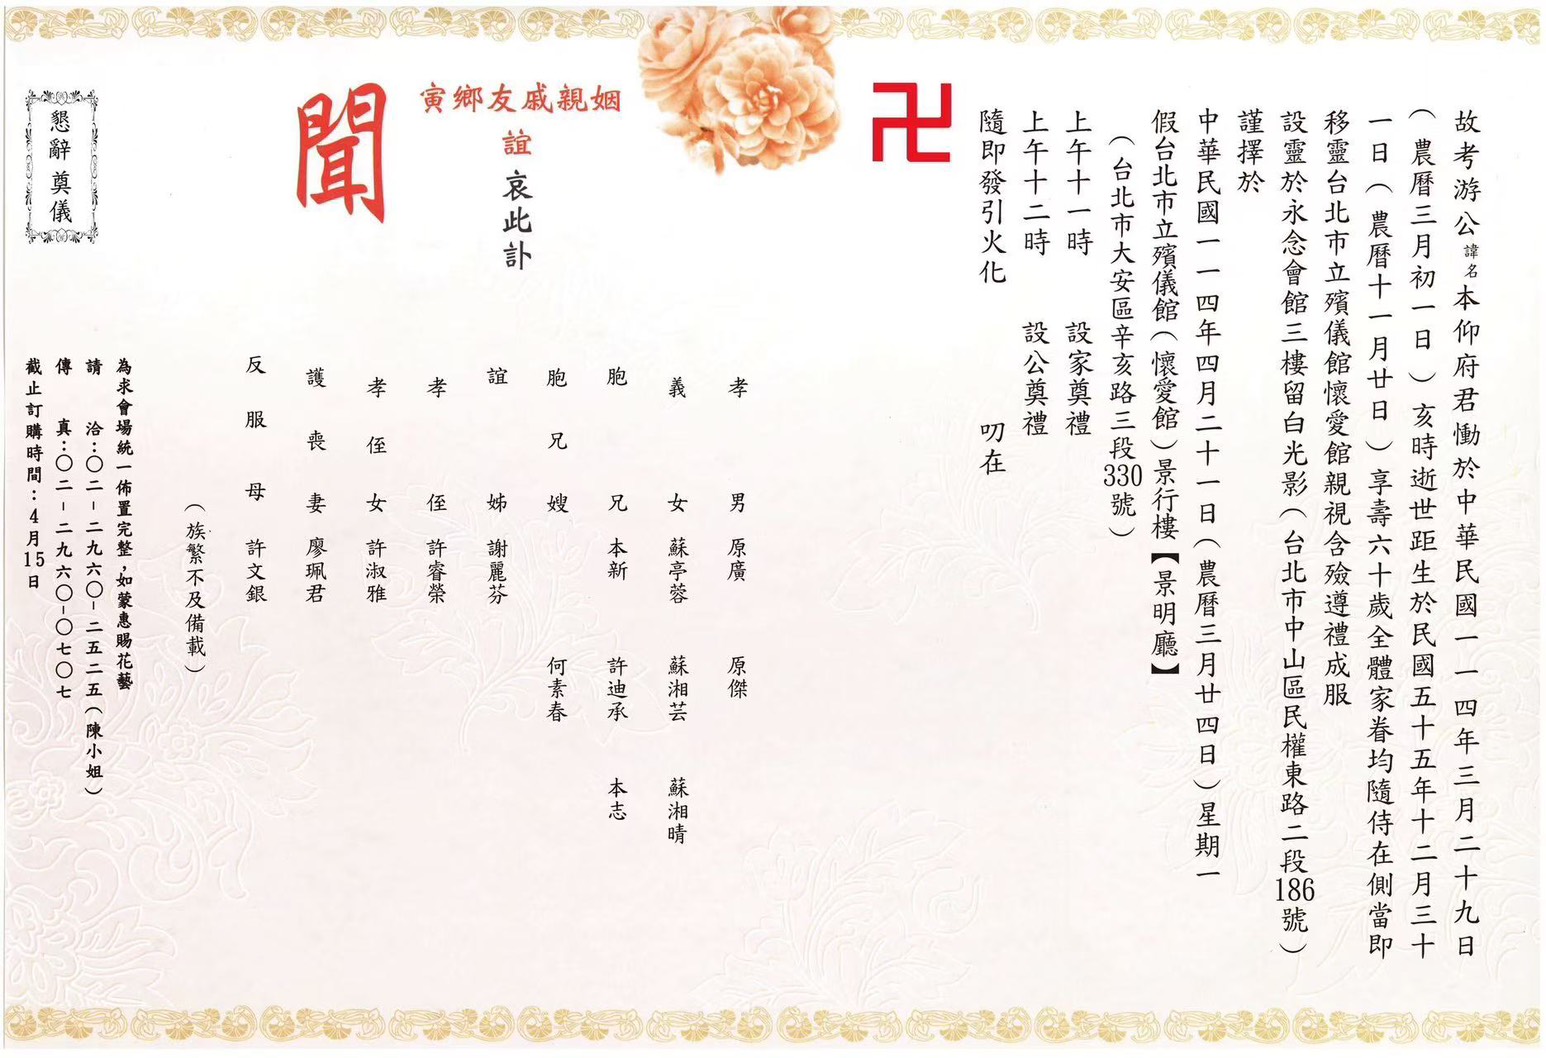 故考游公諱名本仰府君慟於中華民國一一四年三月二十九日
（農曆三月初一日）亥時逝世距生於民國五十五年十二月三十
一日（農曆十一月廿日）享壽六十歲全體家眷均隨侍在側當即
移靈台北市立殯儀館懷愛館親視含殮遵禮成服
設靈於永念會館三樓留白光影（台北市中山區民權東路二段186號）
謹擇於
中華民國一一四年四月二十一日（農曆三月廿四日）星期一
假台北市立殯儀館（懷愛館）景行樓【景明廳】
（台北市大安區辛亥路三段330號）
上午十一時　設家奠禮
上午十二時　設公奠禮
隨即發引火化　叨在
卍
姻親戚友鄉寅
誼
哀此訃
聞
孝男　原廣　原傑
義女　蘇亭蓉　蘇湘芸　蘇湘晴
胞兄　本新　許迪承　本志
胞兄嫂　何素春
誼姊　謝麗芬
孝侄　許睿榮
孝侄女　許淑雅
護喪妻　廖珮君
反服母　許文銀
（族繁不及備載）
為求會場統一佈置完整，如蒙惠賜花藝
請洽：〇二-二九六〇-二五二五（陳小姐）
傳真：〇二-二九六〇-〇七〇七
截止訂購時間：4月15日
懇辭奠儀